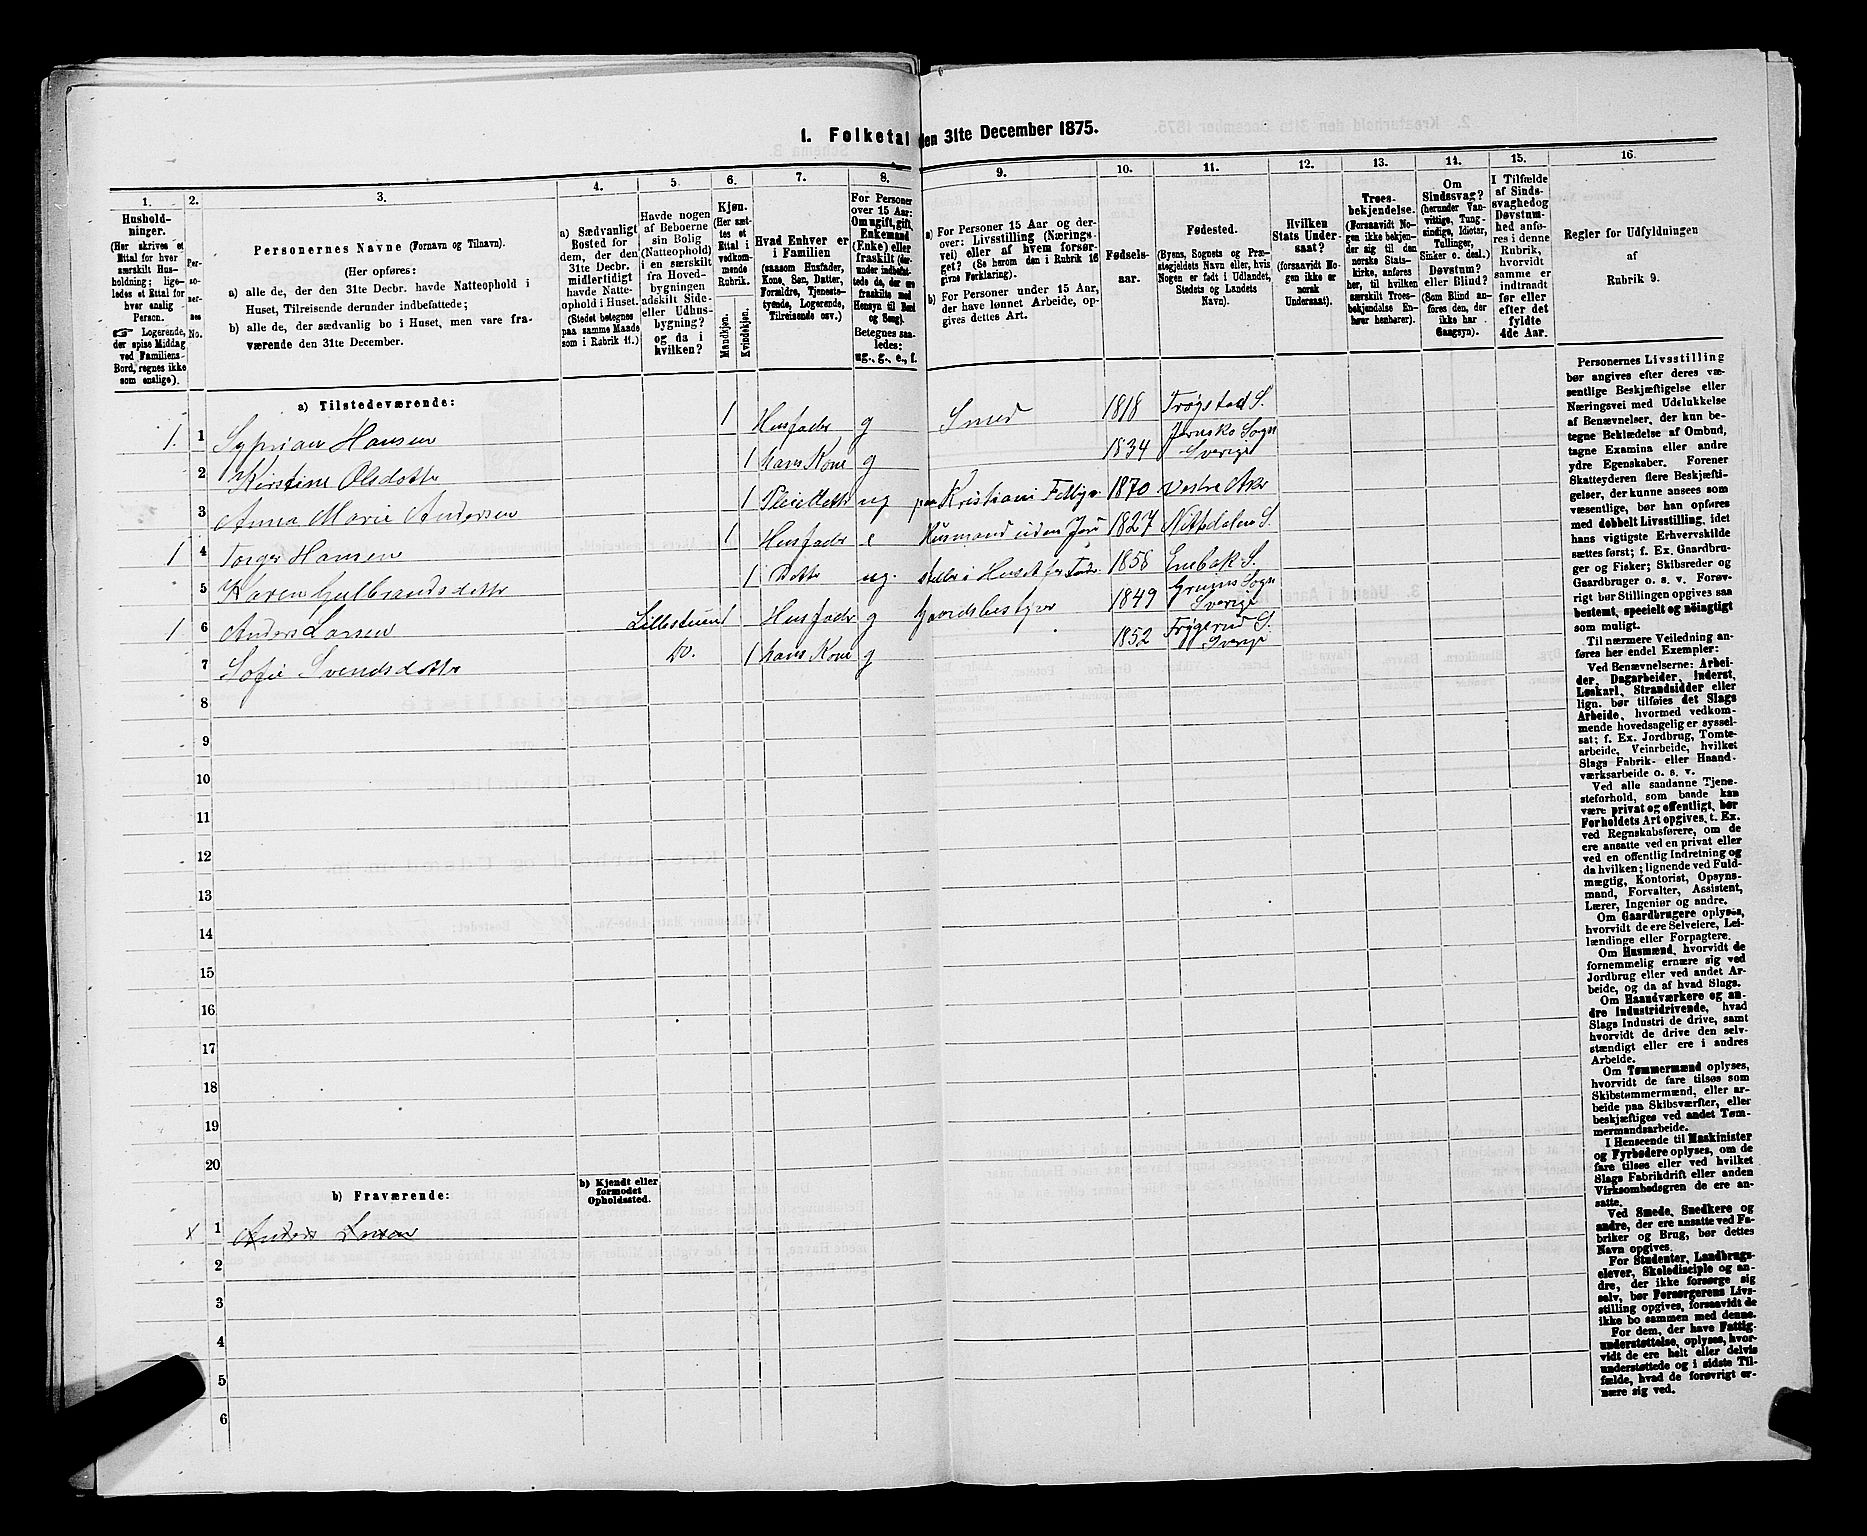 1. Folketal den 31te December 1875.
1.
2.
3.
4.
5.
6.
7.
8.
9.
10.
11.
12.
13.
14.
15.
16.
Hushold-
ninger.
(Her skrives et
Ettal for hver
særskilt Hus-
holdning; lige-
ledes et Ettal for
hver enslig
Person.
☞ Logerende,
der spise Middag
ved Familiens
Bord, regnes ikke
som enslige).
Per-
so-
ner-
nes
No.
Personernes Navne (Fornavn og Tilnavn).
(Her opføres:
a) alle de, der den 31te Decbr. havde Natteophold i
Huset, Tilreisende derunder indbefattede;
b) alle de, der sædvanlig bo i Huset, men vare fra-
værende den 31te December.
a) Sædvanligt
Bosted for
dem, der den
31te Decbr.
midlertidigt
havde Natte-
ophold i Huset.
(Stedet betegnes
paa samme Maade
som i Rubrik 11.)
Havde nogen
af Beboerne
sin Bolig
(Natteophold)
i en særskilt
fra Hoved-
bygningen
adskilt Side-
eller Udhus-
bygning?
og da i
hvilken?
Kjøn.
(Her sæt-
tes et
Ettal i
vedkom-
mende
Rubrik.
Mandkjøn.
Kvindekjøn.
Hvad Enhver er
i Familien
(saasom Husfader,
Kone, Søn, Datter,
Forældre, Tjeneste-
tyende, Logerende,
Tilreisende osv.)
For Personer
over 15 Aar:
Om ugift, gift,
Enkemand
(Enke) eller
fraskilt (der-
under indbefat-
tede de, der ere
fraskilte med
Hensyn til Bord
og Seng).
Betegnes saa-
ledes:
ug., g., e., f.
a) For Personer 15 Aar og der-
over: Livsstilling (Nærings-
vei) eller af hvem forsør-
get? (Se herom den i Rubrik 16
givne Forklaring).
b) For Personer under 15 Aar,
der have lønnet Arbeide, op-
gives dettes Art.
Fødsels-
aar.
Fødested.
(Byens, Sognets og Præ-
stegjeldets Navn eller, hvis
Nogen er født i Udlandet,
Stedets og Landets
Navn).
Hvilken
Stats Under-
saat?
(forsaavidt No-
gen ikke er
norsk
Undersaat).
Troes-
bekjendelse.
(Forsaavidt No-
gen ikke bekjen-
der sig til den
norske Stats-
kirke, anføres
her, til hvilken
særskilt Troes-
bekjendelse En-
hver henhører).
Om
Sindssvag?
(herunder Van-
vittige, Tung-
sindige, Idioter,
Tullinger,
Sinker o. desl.)
Døvstum?
eller Blind?
(Som Blind an-
føres den, der
ikke har
Gangsyn).
I Tilfælde
af Sinds-
svaghed og
Døvstum-
hed anfø-
res i denne
Rubrik,
hvorvidt
samme er
indtraadt
før eller
efter det
fyldte
4de Aar.
Regler for Udfyldningen
af
Rubrik 9.
a) Tilstedeværende:
1. 1 Syprian Hansen 1 Husfader g Smed 1818 Trøgstad S.
2 Kerstine Olsdottr 1 hans Kone g 1834 Jernsko Sogn
Sverige
3 Anna Marie Andersen 1 Pleiedattr ug paa Kristiani Fattigv. 1870 Vestre Aker
1 4 Torger Hansen 1 Husfader e Husmand uden Jord 1827 Nittedalen S.
5 Karen Gulbrandsdottr 1 Dottr ug. steller i Huset for Fader 1858 Enebak S.
1 6 Anders Larsen Lillestuen 1 Husfader g Gaardsbestyrer 1849 Grums Sogn
Sverige
7 Sofie Svendsdottr Do. 1 hans Kone g 1852 Frygerud S.
Sverige
8
9
10
11
12
13
14
15
16
17
18
19
20
b) Fraværende:
b) Kjendt eller
formodet
Opholdssted.
x 1 Anders Larsen
2
3
4
5
6
Personernes Livsstilling
bør angives efter deres væ-
sentlige Beskjæftigelse eller
Næringsvei med Udelukkelse
af Benævnelser, der kun be-
tegne Beklædelse af Ombud,
tagne Examina eller andre
ydre Egenskaber. Forener
Skatteyderen flere Beskjæfti-
gelser, der kunne ansees som
væsentlige, bør han opføres
med dobbelt Livsstilling, idet
hans vigtigste Erhvervskilde
sættes først; f. Ex. Gaardbru-
ger og Fisker; Skibsreder og
Gaardbruger o. s. v. Forøv-
rigt bør Stillingen opgives saa
bestemt, specielt og nøiagtigt
som muligt.
Til nærmere Veiledning an-
føres her endel Exempler:
Ved Benævnelserne: Arbei-
der, Dagarbeider, Inderst,
Løskarl, Strandsidder eller
lign. bør tilføies det Slags
Arbeide, hvormed vedkom-
mende hovedsagelig er syssel-
sat; f. Ex. Jordbrug, Tomte-
arbeide, Veiarbeide, hvilket
Slags Fabrik- eller Haand-
værksarbeide o. s. v.
Ved alle saadanne Tjene-
steforhold, som baade kan
være privat og offentligt, bør
Forholdets Art opgives, t. Ex.
ved Regnskabsførere, om de
ere ansatte ved en privat eller
ved en offentlig Indretning og
da hvilken; lignende ved Fuld-
mægtig, Kontorist, Opsyns-
mand, Forvalter, Assistent,
Lærer, Ingeniør og andre.
Om Gaardbrugere oplyses,
hvorvidt de ere Selveiere, Lei-
lændinge eller Forpagtere.
Om Husmænd, hvorvidt de
fornemmelig ernære sig ved
Jordbrug eller ved andet Ar-
beide, og da af hvad Slags.
Om Haandværkere og an-
dre Industridrivende, hvad
Slags Industri de drive, samt
hvorvidt de drive den selv-
stændigt eller ere i andres
Arbeide.
Om Tømmermænd oplyses,
hvorvidt de fare tilsøs som
Skibstømmermænd, eller ar-
beide paa Skibsværfter, eller
beskjæftiges ved andet Tøm-
mermandsarbeide.
I Henseende til Maskinister
og Fyrbødere oplyses, om de
fare tilsøs eller ved hvilket
Slags Fabrikdrift eller anden
Virksomhedsgren de ere an-
satte.
Ved Smede, Snedkere og
andre, der ere ansatte ved Fa-
briker og Brug, bør dettes
Navn opgives.
For Studenter, Landbrugs-
elever, Skoledisciple og an-
dre, der ikke forsørge sig
selv, bør Forsørgerens Livs-
stilling opgives, forsaavidt de
ikke bo sammen med denne.
For dem, der have Fattig-
understøttelse, oplyses, hvor-
vidt de ere helt eller delvis
understøttede og i sidste Til-
fælde, hvad de forøvrigt er-
nære sig ved.